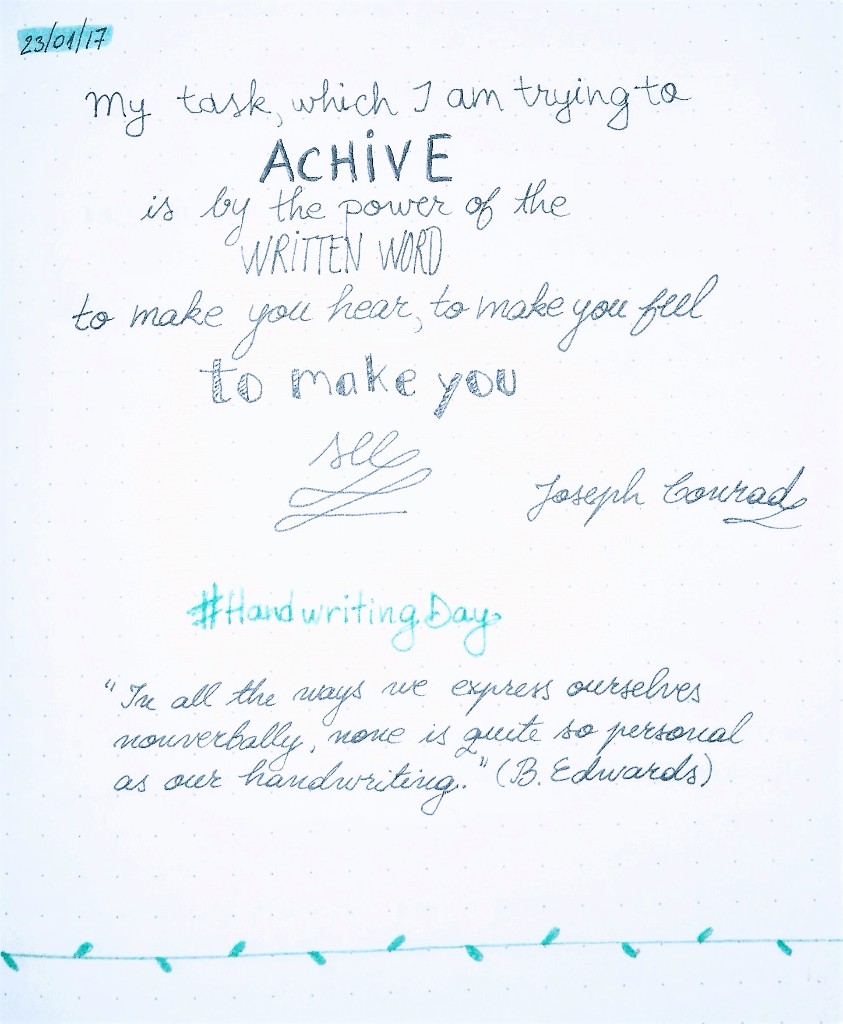 23/01/17
My task, which I am trying to
ACHiVE
is by the power of the
WRiTTEN WORD
to make you hear, to make you feel
to make you
see
Joseph Conrad
#HandwritingDay
"In all the ways we express ourselves
nonverbally, none is quite so personal
as our handwriting." (B. Edwards)